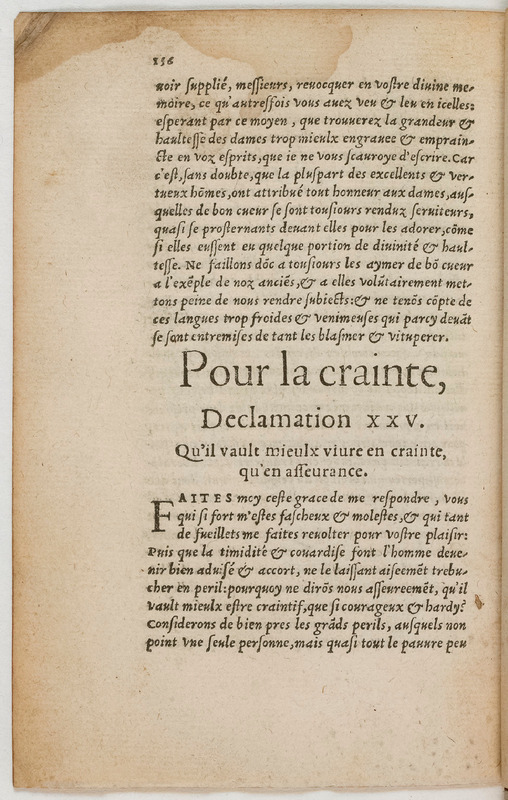 156
uoir supplié, messieurs, reuocquer en vostre diuine me-
moire, ce qu'autresfois vous auez veu & leu en icelles:
esperant par ce moyen, que trouuerez la grandeur &
haultesse des dames trop mieulx engrauee & emprain-
cte en voz esprits, que ie ne vous scauroye d'escrire. Car
c'est, sans doubte, que la pluspart des excellents & ver-
tueux hõmes, ont attribué tout honneur aux dames, aus-
quelles de bon cueur se sont tousiours renduz seruiteurs,
quasi se prosternants deuant elles pour les adorer, cõme
si elles eussent eu quelque portion de diuinité & haul-
tesse. Ne faillons dõc a tousiours les aymer de bõ cueur
a l'exẽple de noz anciẽs, & a elles volũtairement met-
tons peine de nous rendre subiects: & ne tenõs cõpte de
ces langues trop froides & venimeuses qui parcy deuãt
se sont entremises de tant les blasmer & vituperer.
Pour la crainte,
Declamation xxv.
Qu'il vault mieulx viure en crainte,
qu'en asseurance.
FAITES moy ceste grace de me respondre, vous
qui si fort m'estes fascheux & molestes, & qui tant
de fueillets me faites reuolter pour vostre plaisir:
Puis que la timidité & couardise font l'homme deue-
nir bien aduisé & accort, ne le laissant aiseemẽt trebu-
cher en peril: pourquoy ne dirõs nous asseureemẽt, qu'il
vault mieulx estre craintif, que si courageux & hardy?
Considerons de bien pres les grãds perils, ausquels non
point vne seule personne, mais quasi tout le pauure peu